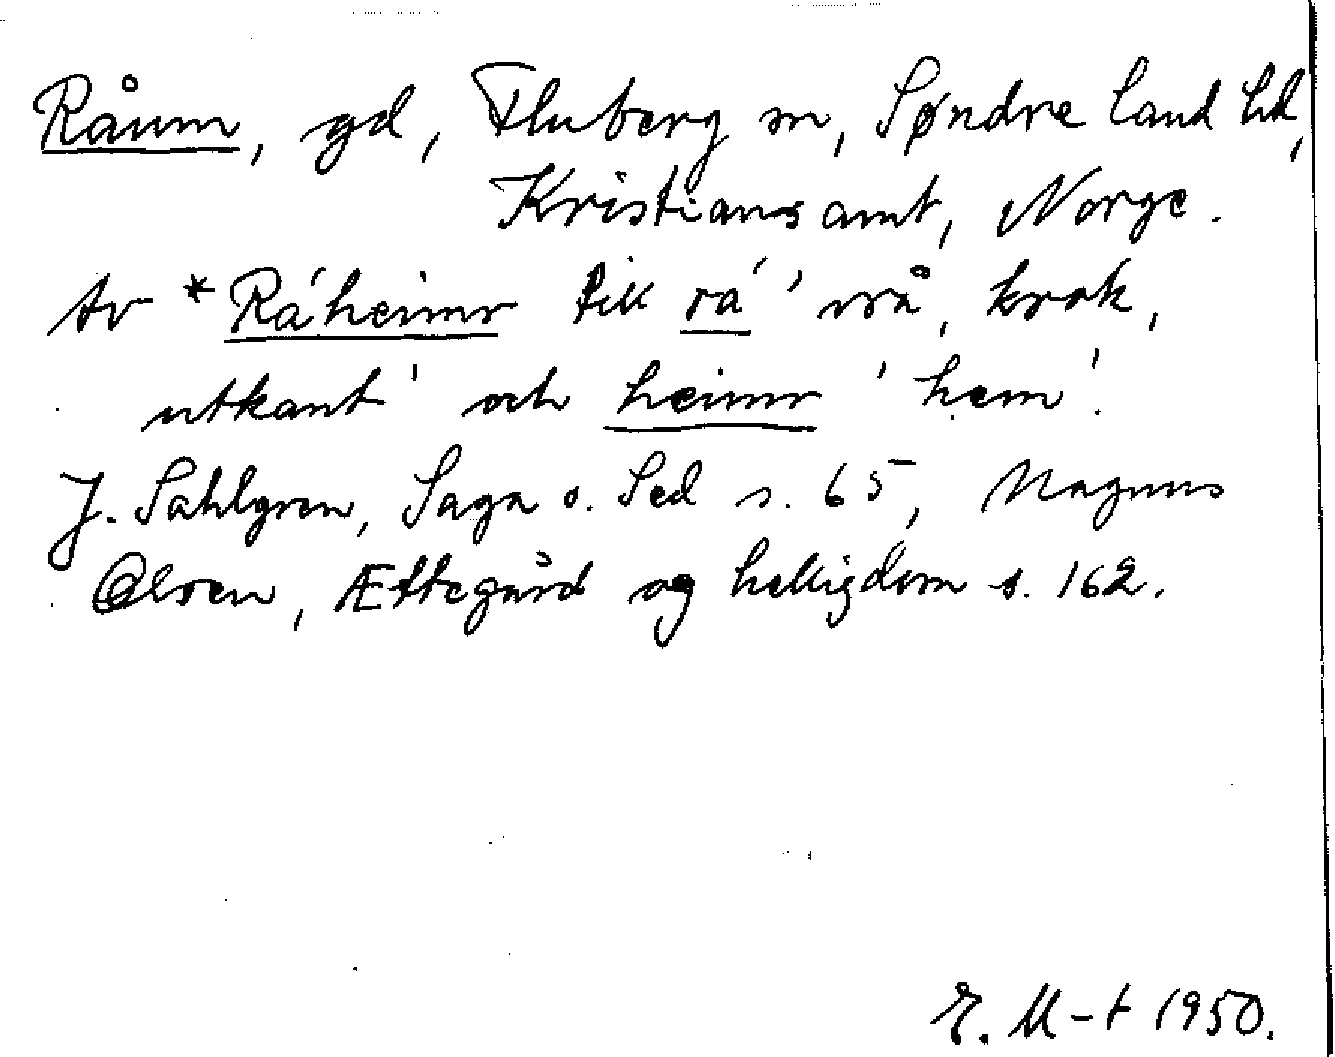 Råum, gd, Fluberg sn, Søndre Land hd,
Kristians amt, Norge.
Av *Ráheimr till rá 'vrå, krok,
utkant' och heimr 'hem'.
J. Sahlgren, Saga o. Sed s. 65, Magnus
Olsen, Ættegård og helligdom s. 162.
E. M-t 1950.